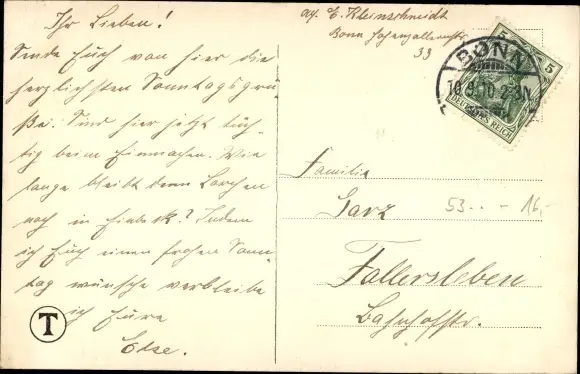 Ihr Lieben!
Sende Euch von hier die
herzlichsten Sonntagsgrü-
ße. Sind hier jetzt tüch-
tig beim Einmachen. Wie
lange bleibt denn Lorchen
noch in Einbeck? Indem
ich Euch einen frohen Sonn-
tag wünsche verbleibe
ich Eure
Else.
T
E. Kleinschmidt
Bonn Hohenzollernstr
33
BONN
10.9.10. 2-3N
5 5
DEUTSCHES REICH
Familie
Garz
53.. - 16,-
Fallersleben
Bahnhofstr.